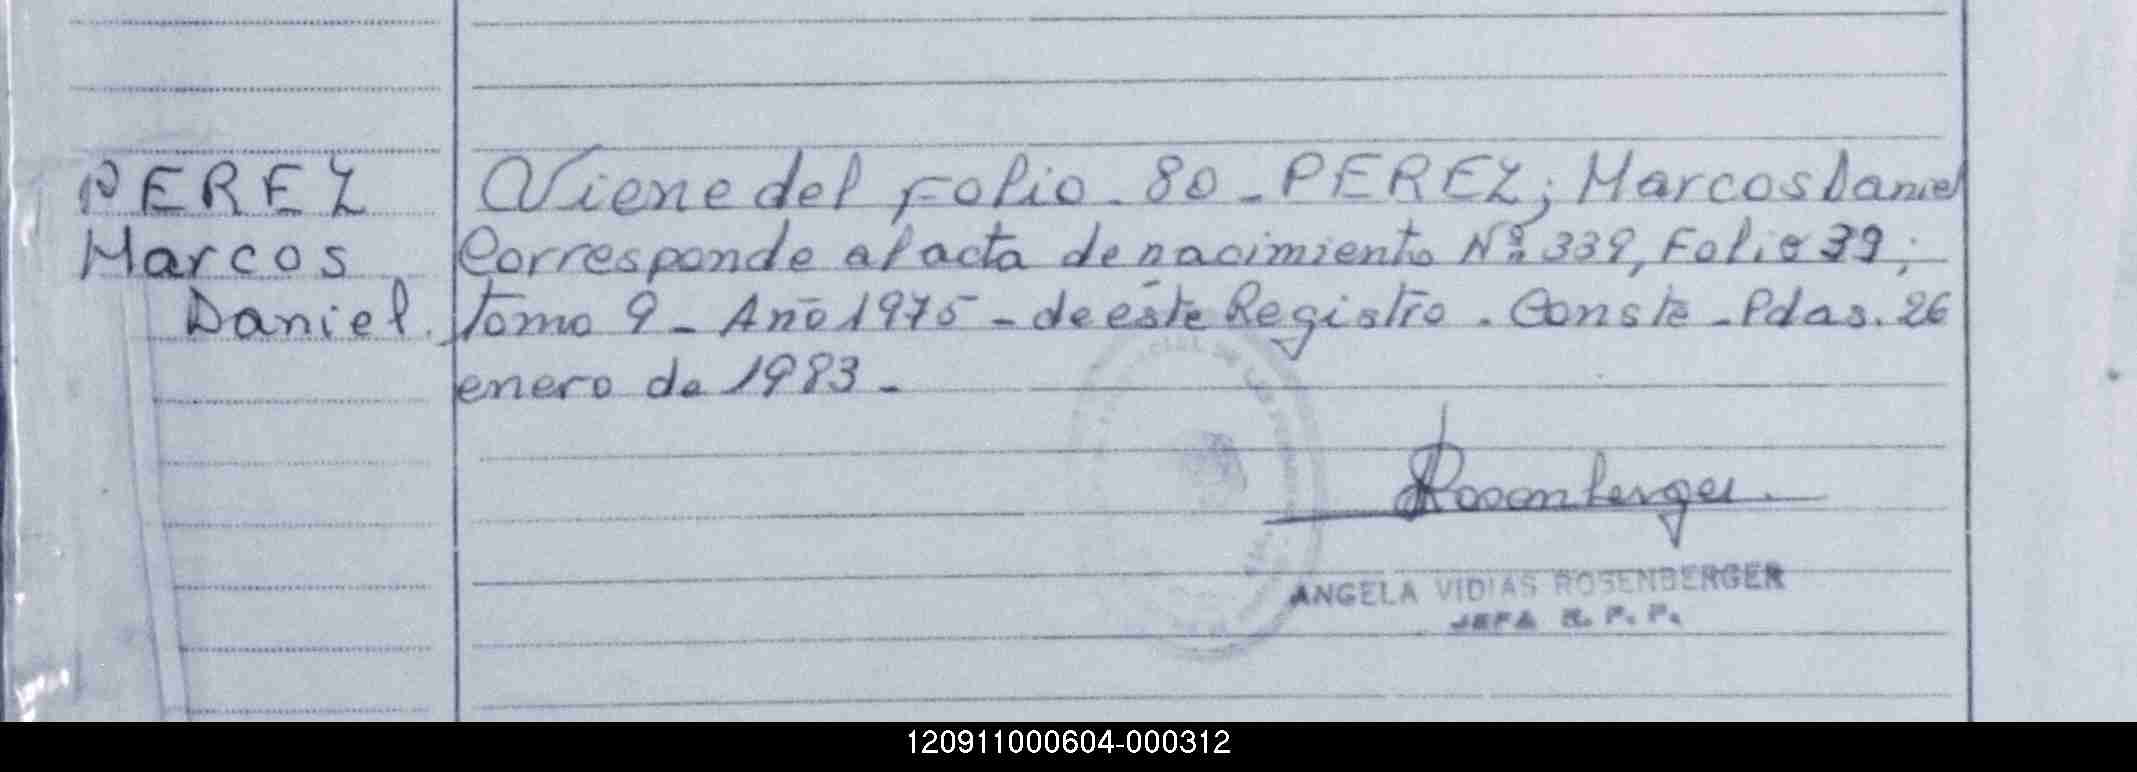 PEREZ
Marcos
Daniel.
Viene del Folio. 80 - PEREZ; Marcos Daniel
Corresponde al acta de nacimiento Nº 339, Folio 39;
tomo 9 - Año 1975 - de éste Registro. Conste - Pdas. 26
enero de 1983 -
Rosenberger
ANGELA VIDIAS ROSENBERGER
JEFA R. P. P.
120911000604-000312